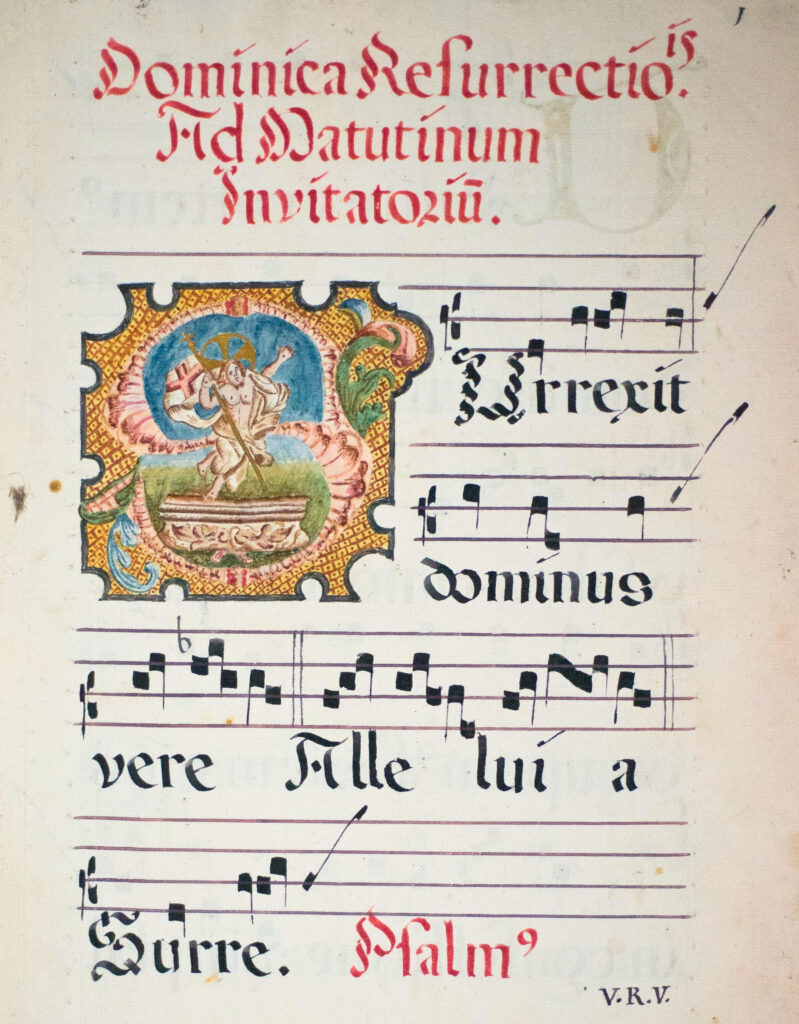 1
Dominica Resurrectio.is
Ad Matutinum
Invitatoriū.
SUrrexit
dominus
vere Alle lui a
Surre. Psalm9
V.R.V.